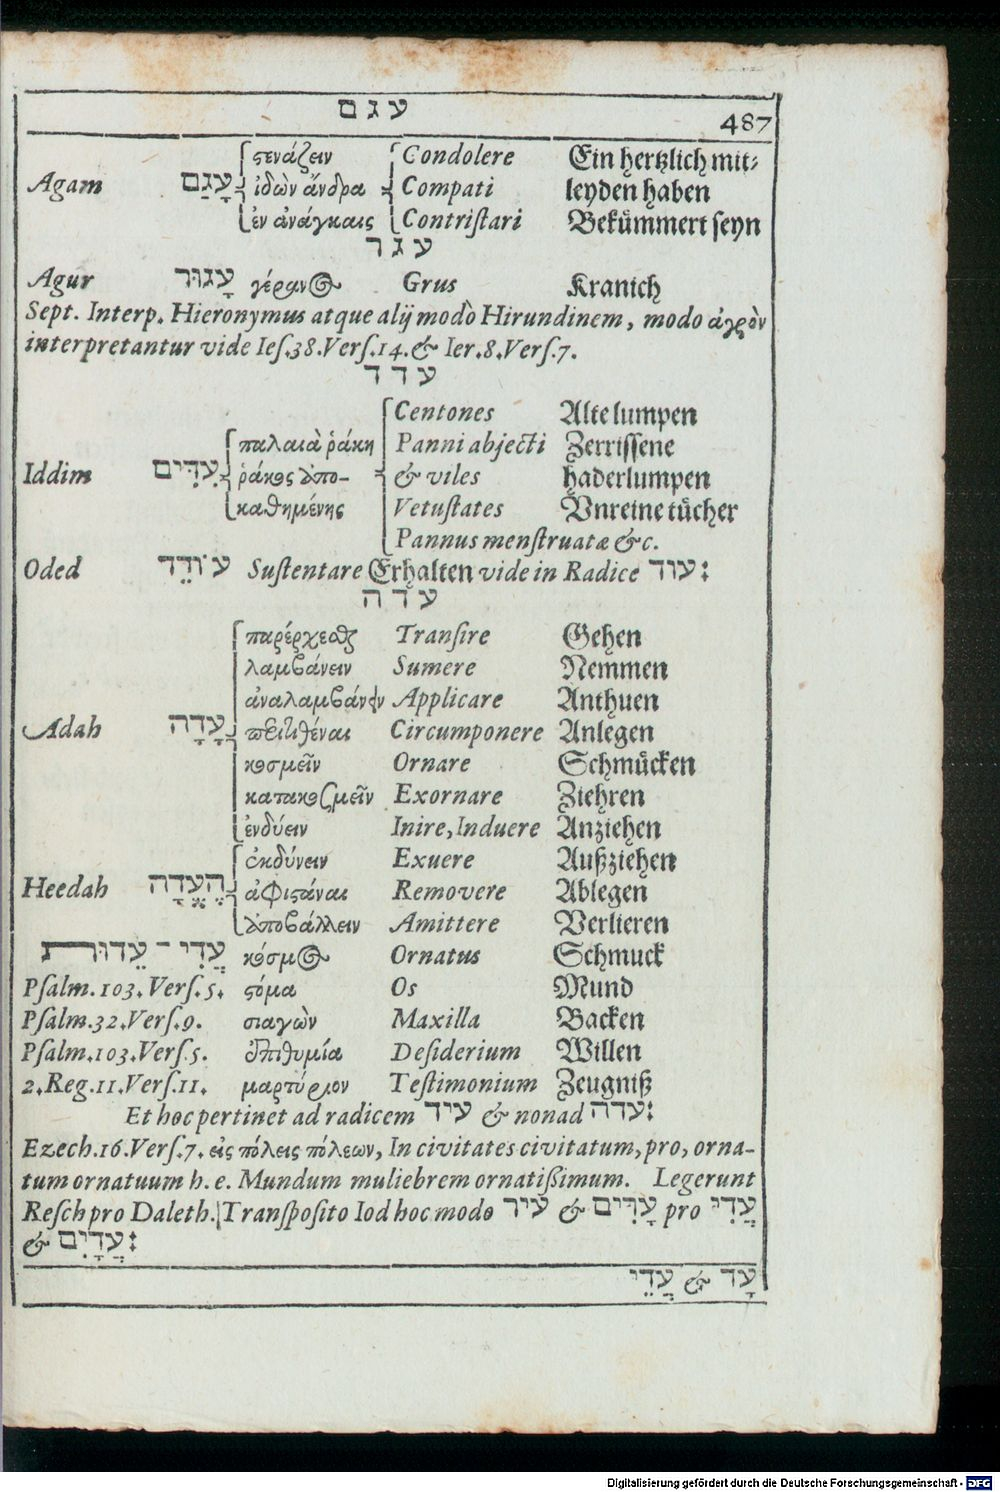 עגם
487
ςενάζειν Condolere Ein hertzlich mit-
Agam עָגַם ἰδὼν ἄνδρα Compati leyden haben
ἐν ἀνάγκαις Contriſtari Bekümmert ſeyn
עגר
Agur עָגוּר γέρανος Grus Kranich
Sept. Interp. Hieronymus atque alij modò Hirundinem, modo ἀγρὸν
interpretantur vide Ieſ.38.Verſ.14.& Ier.8.Verſ.7.
עדד
Centones Alte lumpen
παλαιὰ ῥάκη Panni abjecti Zerriſſene
Iddim עִדִּים ῥάκος ἀπο- & viles haderlumpen
καθημένης Vetuſtates Vnreine tücher
Pannus menſtruatæ &c.
Oded עֹודֵד Suſtentare Erhalten vide in Radice עוד:
עדה
παρέρχεσθαι Tranſire Gehen
λαμβάνειν Sumere Nemmen
ἀναλαμβάνειν Applicare Anthuen
Adah עָדָה περιτιθέναι Circumponere Anlegen
κοσμεῖν Ornare Schmücken
κατακοσμεῖν Exornare Ziehren
ἐνδύειν Inire, Induere Anziehen
ἐκδύνειν Exuere Außziehen
Heedah הֶעֱדָה ἀφιςάναι Removere Ablegen
ἀποβάλλειν Amittere Verlieren
עֲדִי - עֵדוּת κόσμος Ornatus Schmuck
Pſalm.103.Verſ.5. ςόμα Os Mund
Pſalm.32.Verſ.9. σιαγὼν Maxilla Backen
Pſalm.103.Verſ.5. ἐπιθυμία Deſiderium Willen
2.Reg.11.Verſ.11. μαρτύριον Teſtimonium Zeugniß
Et hoc pertinet ad radicem עיד & non ad עדה:
Ezech.16.Verſ.7. εἰς πόλεις πόλεων, In civitates civitatum, pro, orna-
tum ornatuum h. e. Mundum muliebrem ornatißimum. Legerunt
Reſch pro Daleth. Tranſpoſito Iod hoc modo עיר & עָרִים pro עֲדִי
& עֲדָיִם:
עָד & עֲדֵי
Digitalisierung gefördert durch die Deutsche Forschungsgemeinschaft - DFG